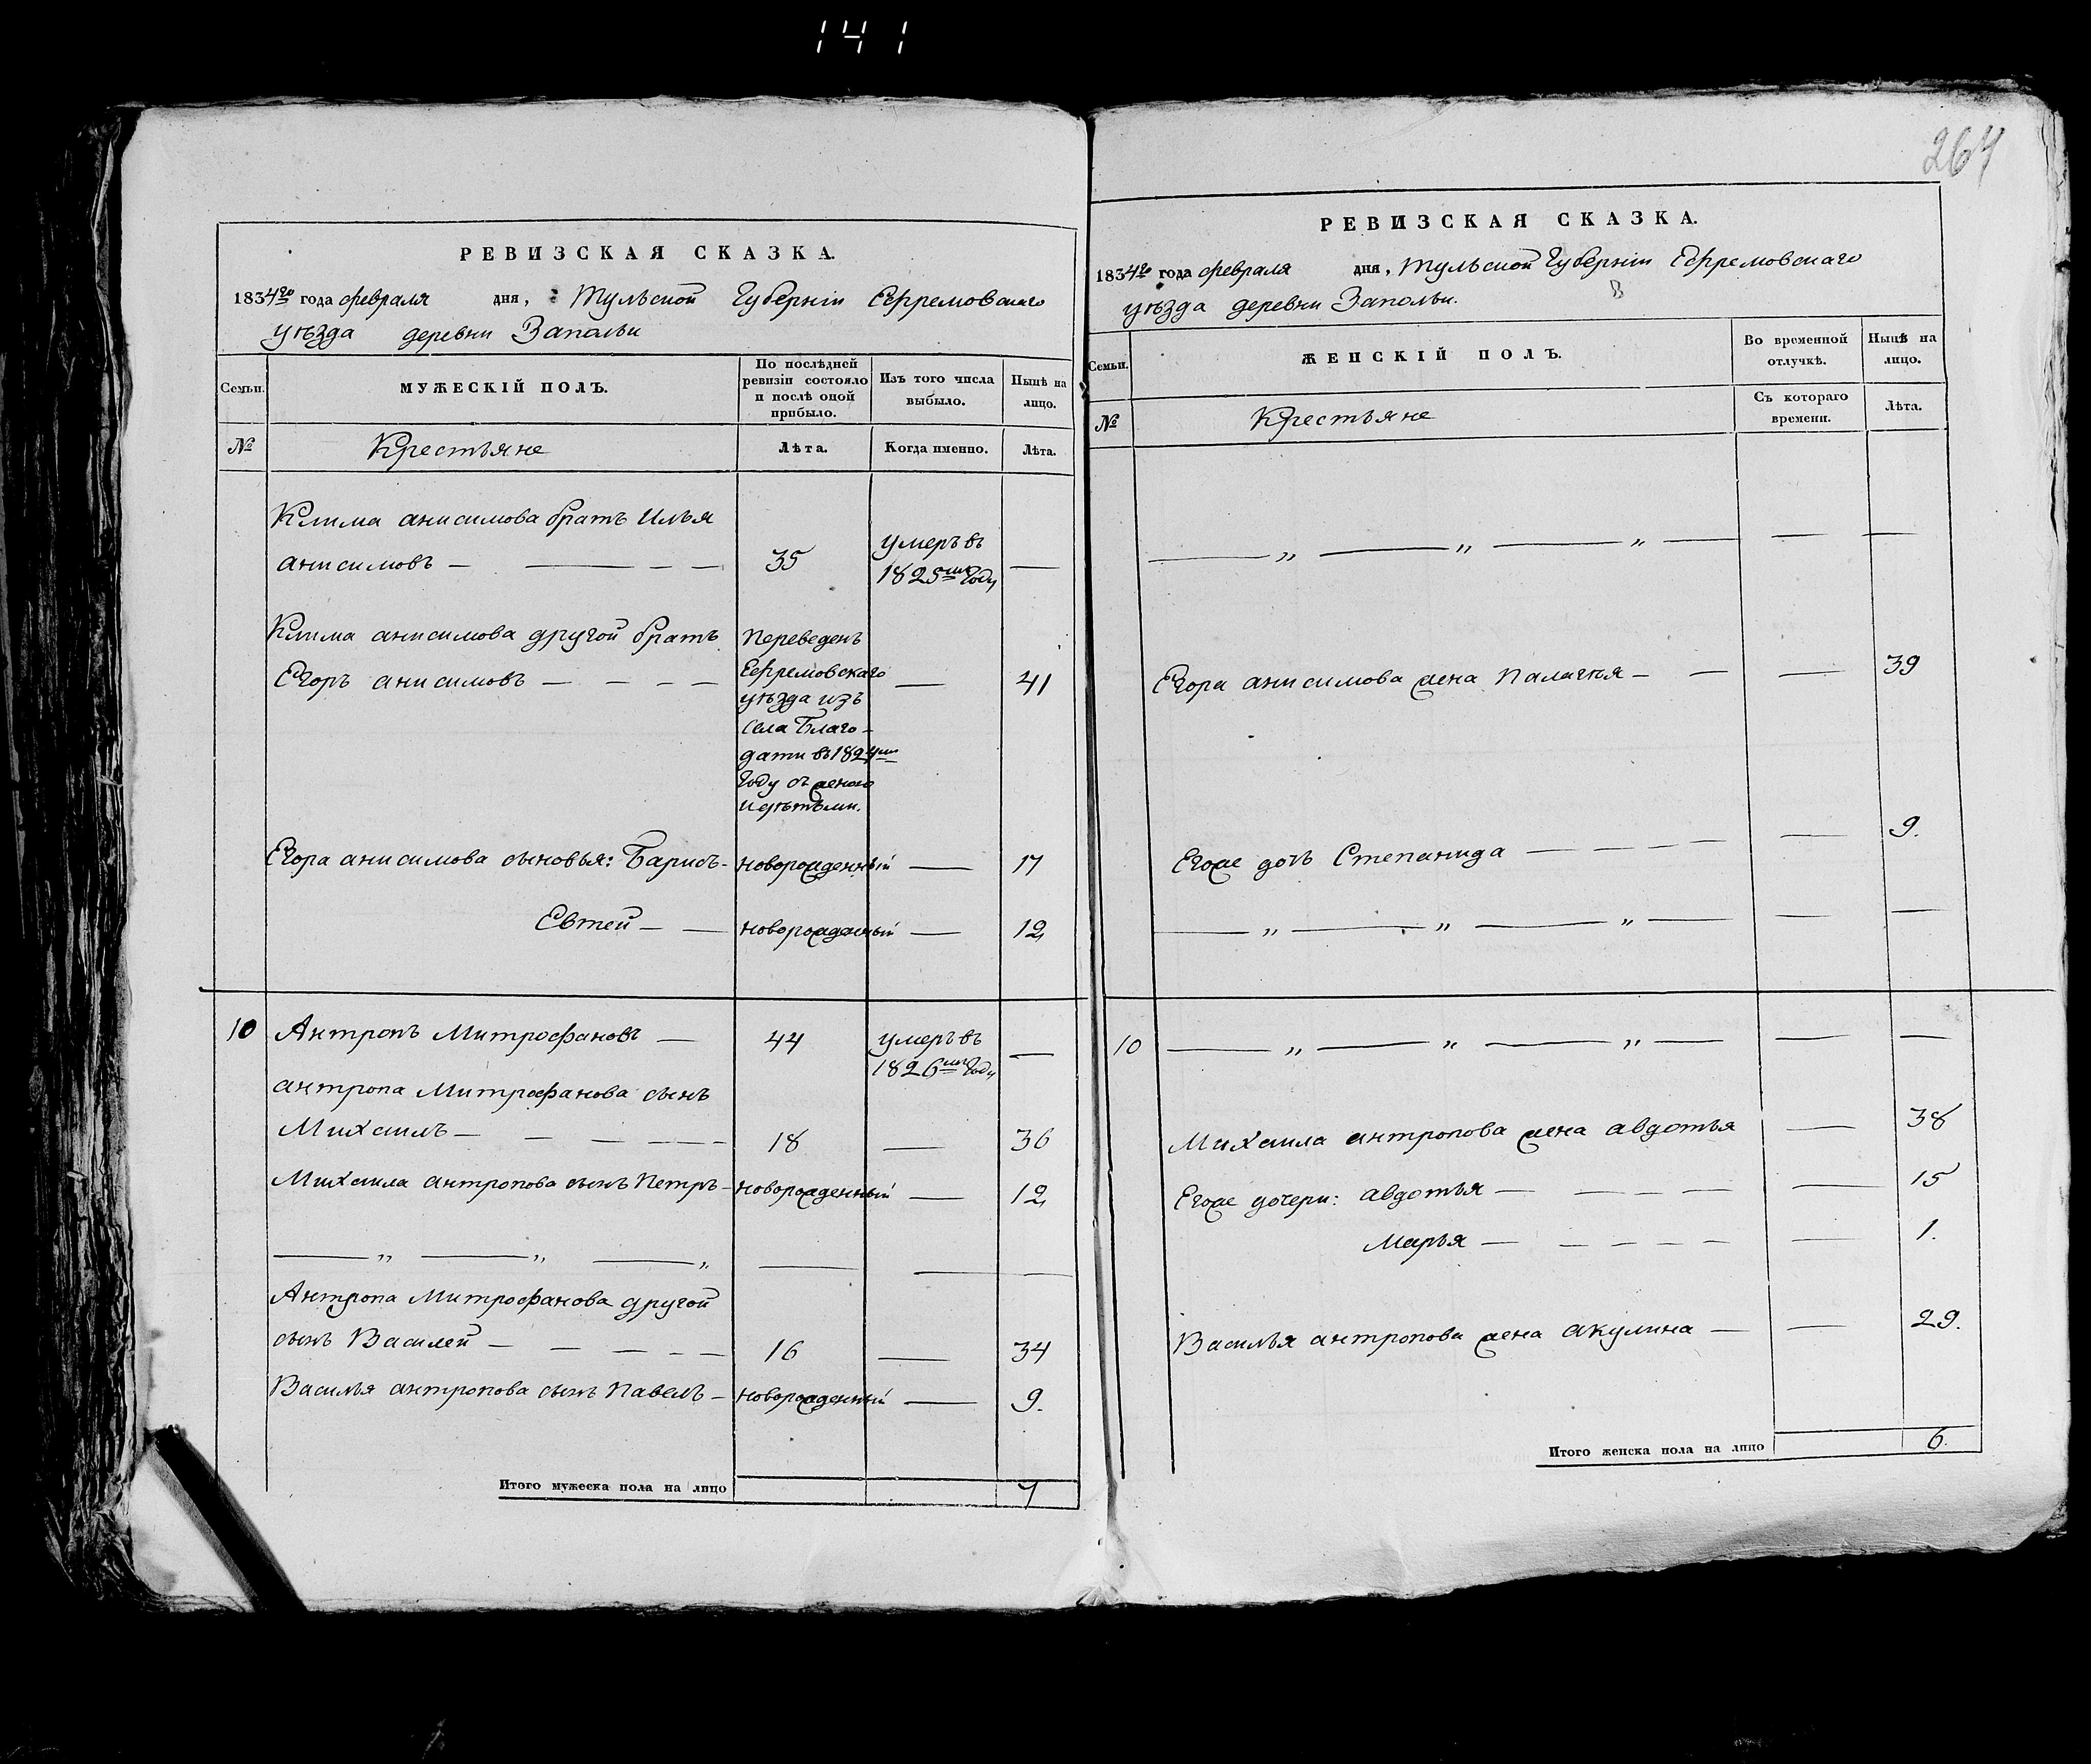 141
264
РЕВИЗСКАЯ СКАЗКА.
1834го года февраля дня, Тульской Губерніи Ефремовскаго
уѣзда деревни Запольи
Семьи.
МУЖЕСКІЙ ПОЛЪ.
По послѣдней
ревизіи состояло
и послѣ оной
прибыло.
Изъ того числа
выбыло.
Нынѣ на
лицо.
№ Крестьяне Лѣта. Когда именно. Лѣта.
Клима анисимова братъ Илья
анисимовъ — 35 умеръ въ 1825мъ Году —
Клима анисимова другой братъ
Егоръ анисимовъ — — 41
Переведенъ
Ефремовскаго
уѣзда изъ
села Благо-
дати въ 1824мъ
Году съ женою
и дѣтьми.
Егора анисимова сыновья: Барисъ - новорожденный — 17
Евтей — новорожденный — 12
10 Антропъ Митрофановъ — 44 умеръ въ 1826мъ Году —
антропа Митрофанова сынъ
Михаилъ — 18 — 36
Михаила антропова сынъ Петръ - новорожденный — 12
— „ — „ — „ — —
Антропа Митрофанова другой
сынъ Василей — 16 — 34
Василья антропова сынъ Павелъ - новорожденный — 9.
Итого мужеска пола на лицо 7
РЕВИЗСКАЯ СКАЗКА.
1834го года февраля дня, Тульской Губерніи Ефремовскаго
уѣзда деревни Запольи.
Семьи.
ЖЕНСКІЙ ПОЛЪ.
Во временной
отлучкѣ.
Нынѣ на
лицо.
№ Крестьяне
Съ котораго
времени.
Лѣта.
— „ — „ — „ — — —
Егора анисимова жена Палагея — — 39
Егоже дочь Степанида — — 9.
— „ — „ — „ — — —
10 — „ — „ — „ — — —
Михаила антропова жена авдотья — 38
Егоже дочери: авдотья — — 15
Марья — — 1.
Василья антропова жена акулина — — 29.
Итого женска пола на лицо 6.